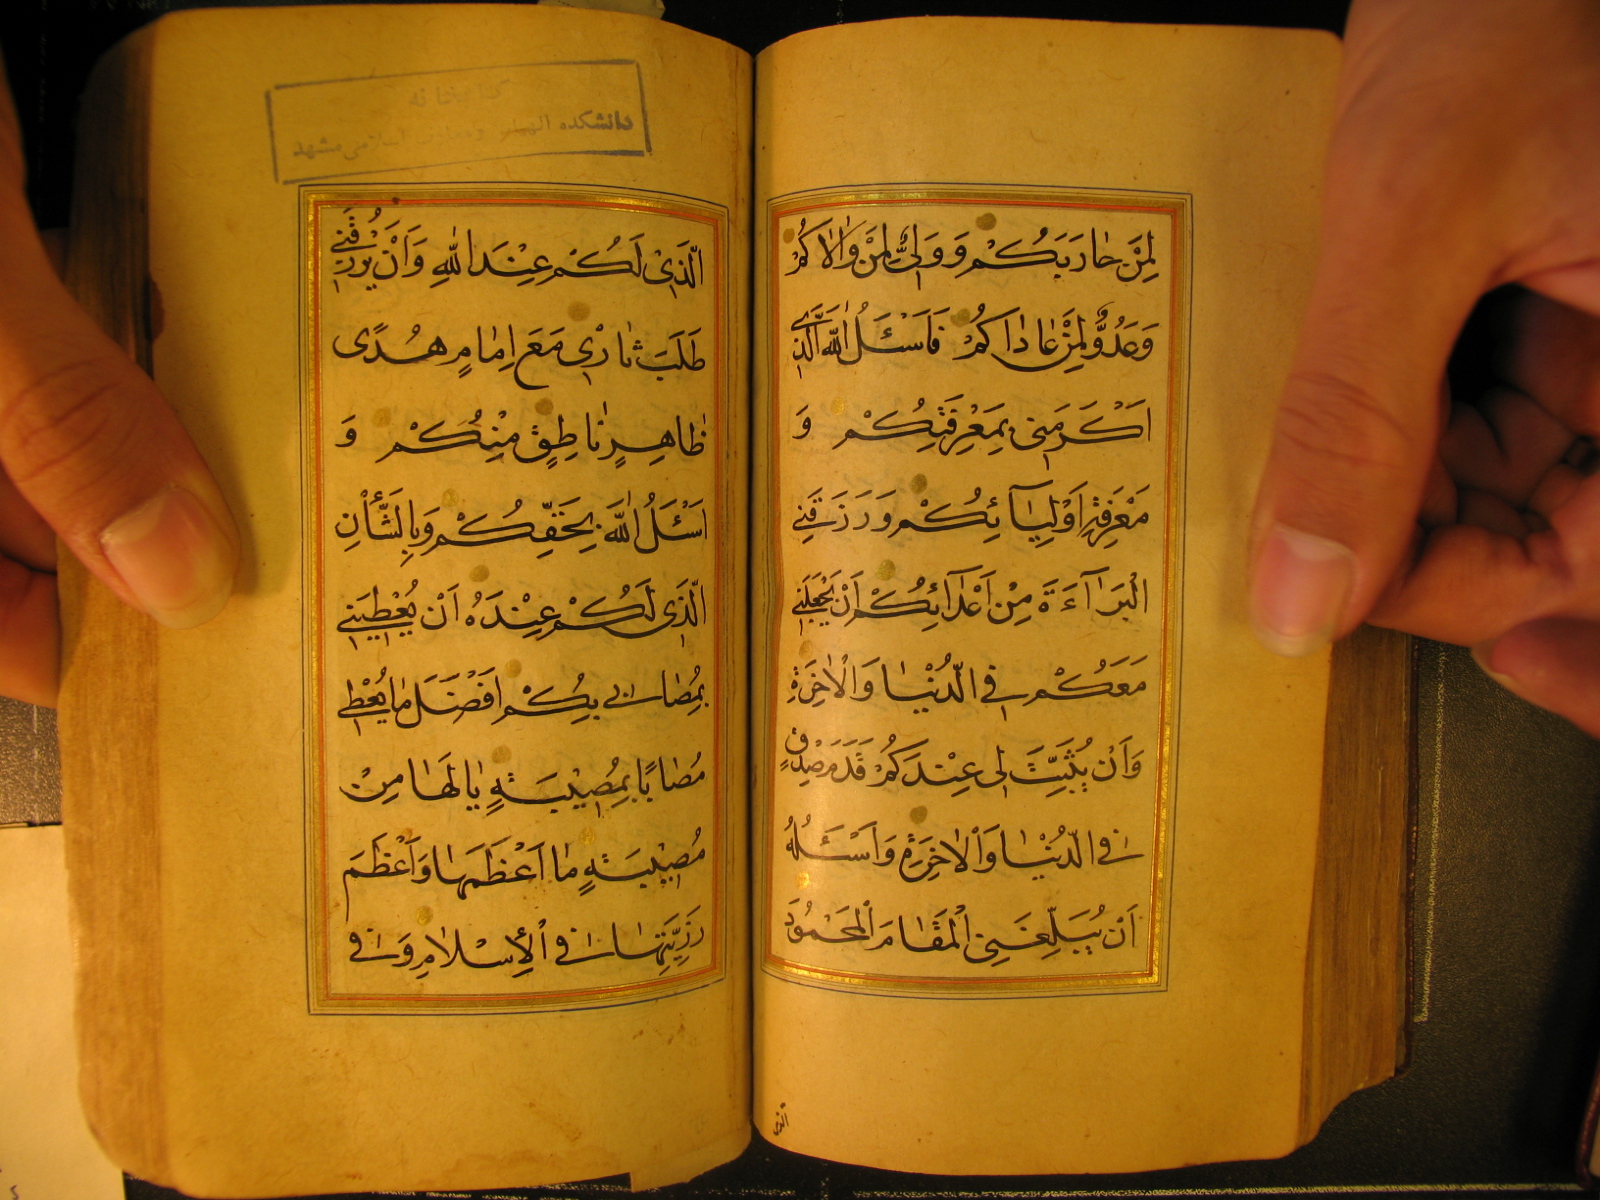 لِمَنْ حَارَبَكُمْ وَ وَلِیٌّ لِمَنْ وَالَاكُمْ
وَعَدُوٌّ لِمَنْ عَادَاكُمْ فَاَسْئَلُ اللّٰهَ الَّذِی
اَكْرَمَنِی بِمَعْرِفَتِكُمْ وَ
مَعْرِفَةِ اَوْلِیَآئِكُمْ وَ رَزَقَنِی
الْبَرَآءَةَ مِنْ اَعْدَآئِكُمْ اَنْ یَجْعَلَنِی
مَعَكُمْ فِی الدُّنْیَا وَ الْاٰخِرَةِ
وَ اَنْ یُثَبِّتَ لِی عِنْدَكُمْ قَدَمَ صِدْقٍ
فِی الدُّنْیَا وَ الْاٰخِرَةِ وَ اَسْئَلُهُ
اَنْ یُبَلِّغَنِی الْمَقَامَ الْمَحْمُودَ
الَّذِی
الَّذِی لَكُمْ عِنْدَ اللّٰهِ وَ اَنْ یَرْزُقَنِی
طَلَبَ ثَارِی مَعَ اِمَامٍ هُدًی
ظَاهِرٍ نَاطِقٍ مِنْكُمْ وَ
اَسْئَلُ اللّٰهَ بِحَقِّكُمْ وَ بِالشَّأْنِ
الَّذِی لَكُمْ عِنْدَهُ اَنْ یُعْطِیَنِی
بِمُصَابِی بِكُمْ اَفْضَلَ مَا یُعْطِی
مُصَابًا بِمُصِیبَةٍ یَا لَهَا مِنْ
مُصِیبَةٍ مَا اَعْظَمَهَا وَ اَعْظَمَ
رَزِیَّتَهَا فِی الْاِسْلَامِ وَ فِی
كتابخانه
دانشكده الهیات و معارف اسلامی مشهد